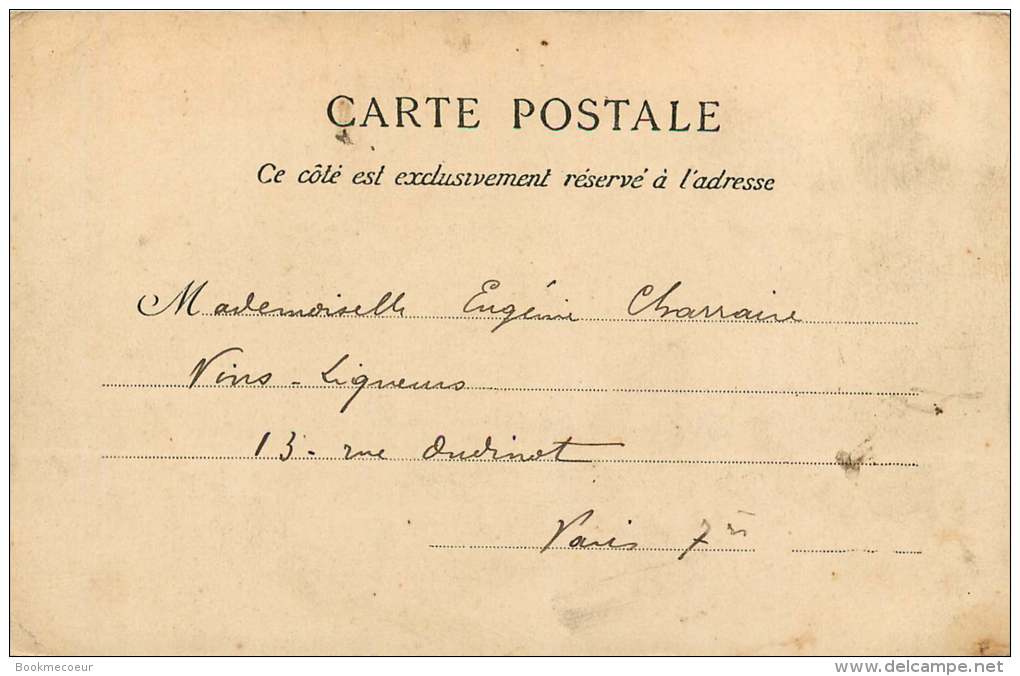 CARTE POSTALE
Ce côté est exclusivement réservé à l'adresse
Mademoiselle Eugénie Charraire
Vins - Liqueurs
13 - rue Oudinot
Paris 7
Bookmecoeur
www.delcampe.net